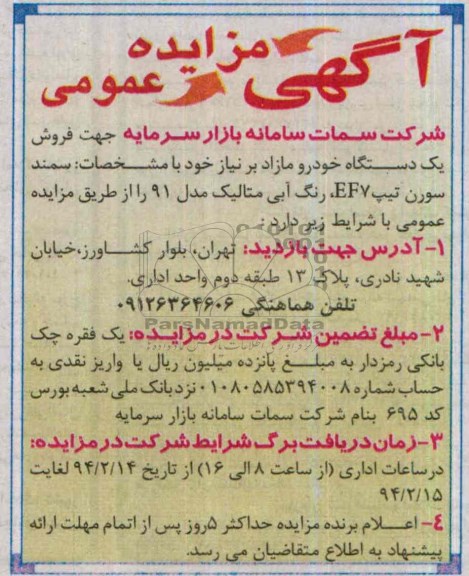 آگهی مزایده
عمومی
شرکت سمات سامانه بازار سرمایه جهت فروش
یک دستگاه خودرو مازاد بر نیاز خود با مشخصات: سمند
سورن تیپ EF۷، رنگ آبی متالیک مدل ۹۱ را از طریق مزایده
عمومی با شرایط زیر دارد :
۱- آدرس جهت بازدید: تهران، بلوار کشاورز، خیابان
شهید نادری، پلاک ۱۳ طبقه دوم واحد اداری.
تلفن هماهنگی ۰۹۱۲۶۳۶۴۶۰۶
ParsNamadData
۲- مبلغ تضمین شرکت در مزایده: یک فقره چک
بانکی رمزدار به مبلغ پانزده میلیون ریال یا واریز نقدی به
حساب شماره ۰۱۰۸۰۵۸۵۳۹۴۰۰۸ نزد بانک ملی شعبه بورس
کد ۶۹۵ بنام شرکت سمات سامانه بازار سرمایه
۳- زمان دریافت برگ شرایط شرکت در مزایده:
در ساعات اداری (از ساعت ۸ الی ۱۶) از تاریخ ۹۴/۲/۱۴ لغایت
۹۴/۲/۱۵
۴- اعلام برنده مزایده حداکثر ۵روز پس از اتمام مهلت ارائه
پیشنهاد به اطلاع متقاضیان می رسد.